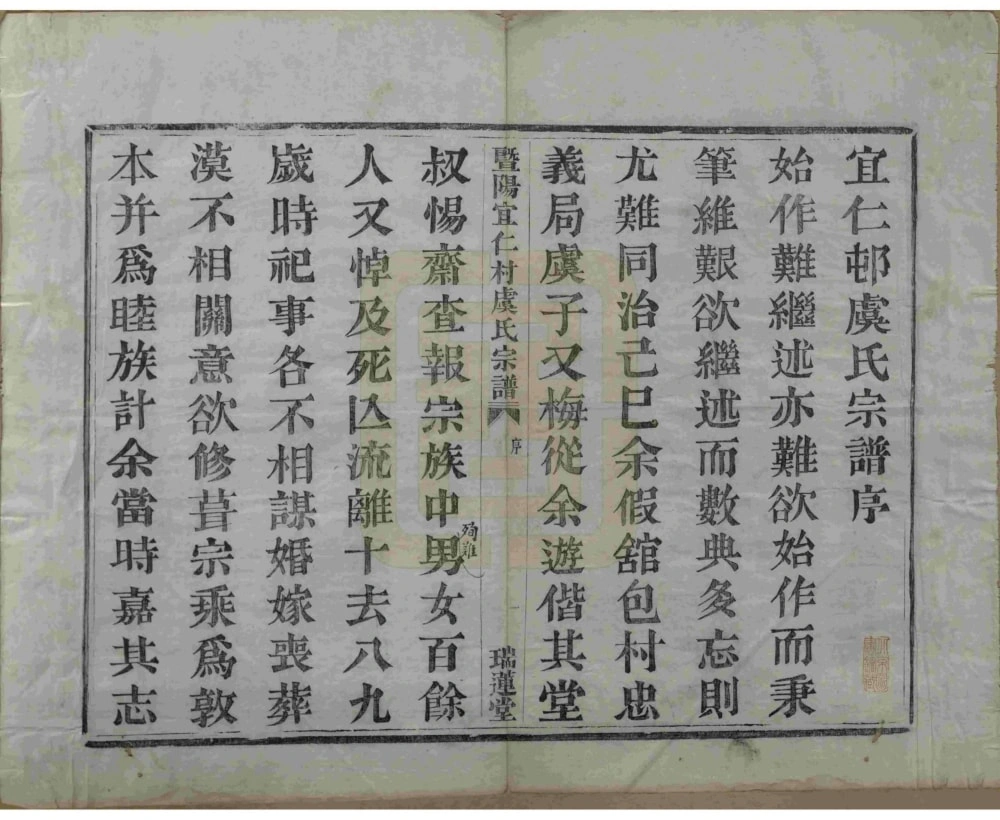 宜仁邨虞氏宗譜序
始作難繼述亦難欲始作而秉
筆維艱欲繼述而數典多忘則
尤難同治己巳余假舘包村忠
義局虞子又梅從余遊偕其堂
暨陽宜仁村虞氏宗譜 序 瑞蓮堂
叔惕齋查報宗族中殉難男女百餘
人又悼及死亾流離十去八九
歲時祀事各不相謀婚嫁喪葬
漠不相關意欲修葺宗乘爲敦
本并爲睦族計余當時嘉其志